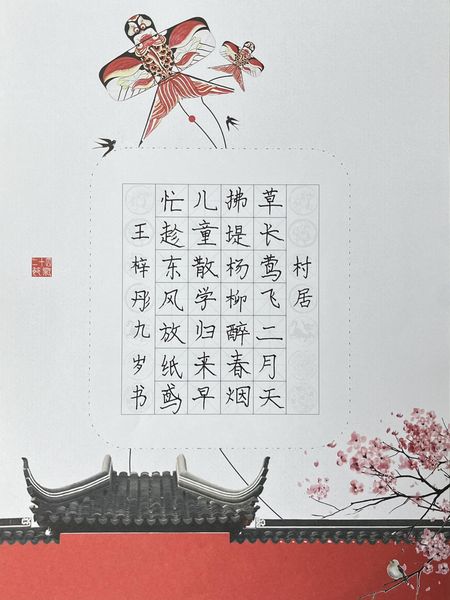 村居
草长莺飞二月天
拂堤杨柳醉春烟
儿童散学归来早
忙趁东风放纸鸢
王梓彤九岁书